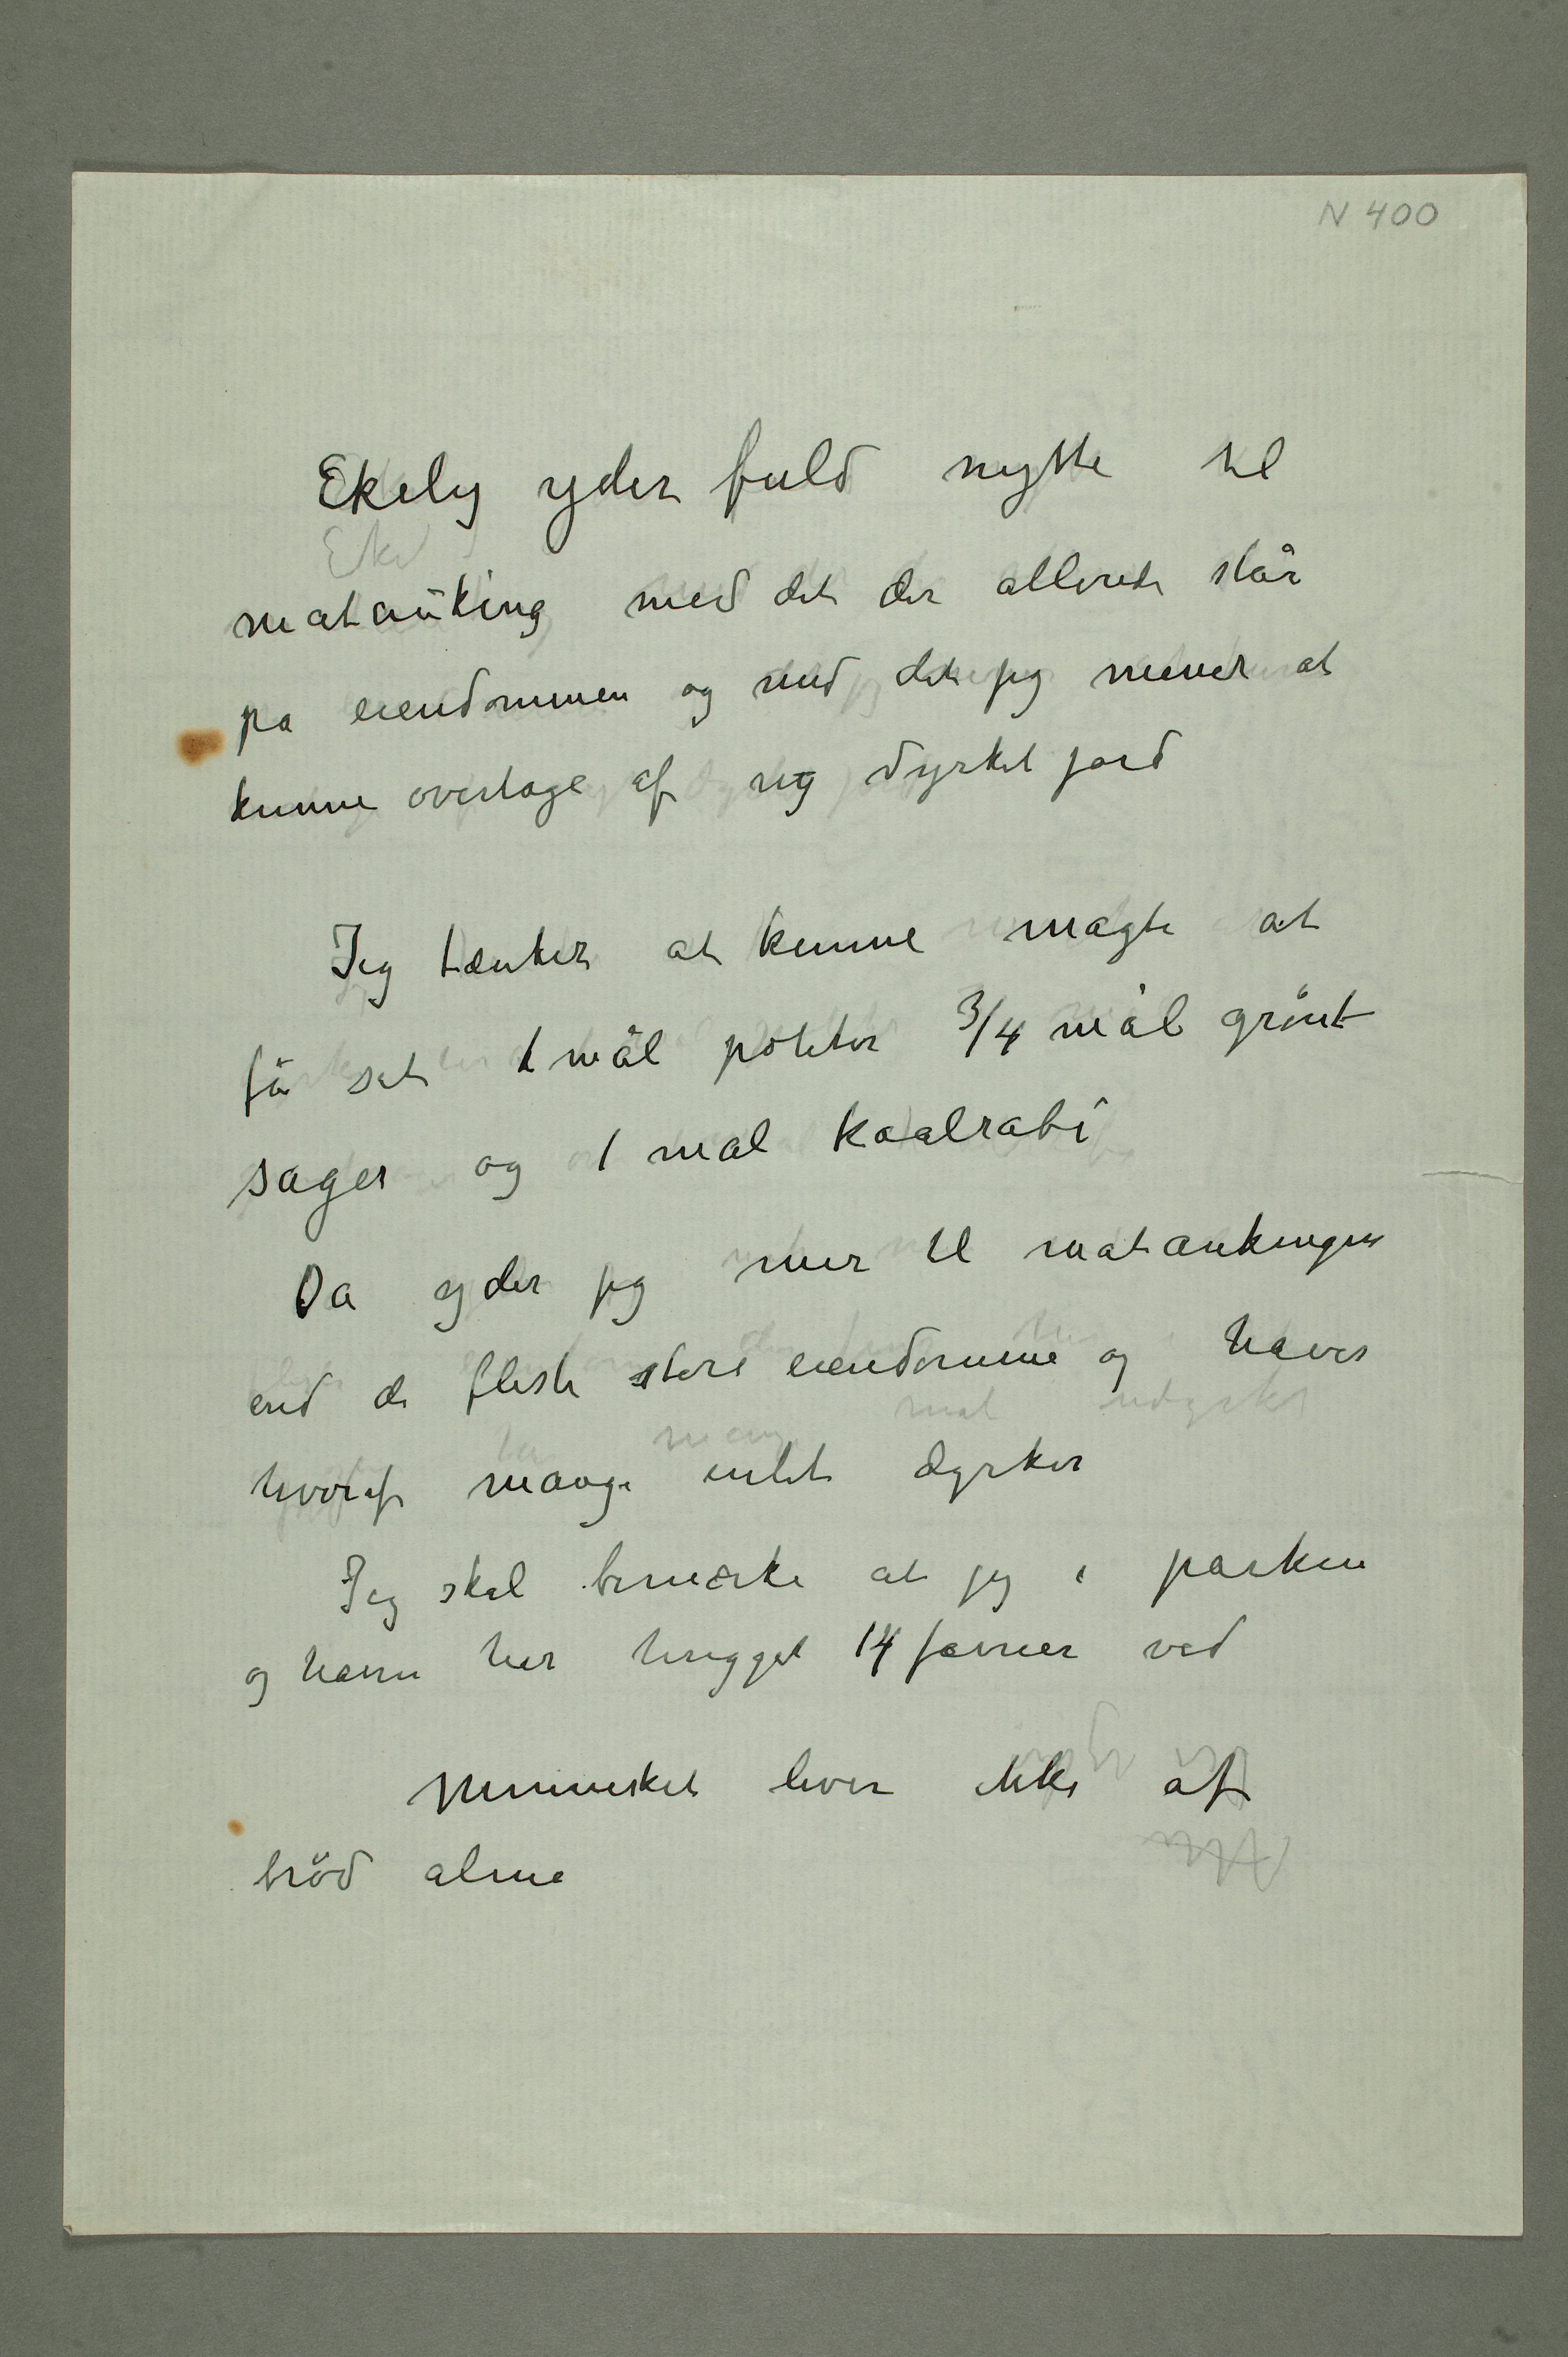 N 400
Ekely yder fuld nytte til
mataüking med det der allerede står
pa eiendommen og med det jeg mener at
kunne overtage af ny dyrket jord
Jeg tænker at kunne magte at
få sat 1 mål poteter 3/4 mål grönt
sager og 1 mal kaalrabi
Da yder jeg mer til mataukingen
end de fleste store eiendomme og haver
hvoraf mange intet dyrker
Jeg skal bemærke at jeg i parken
og haven har hugget 14 favner ved
Mennesket lever ikke af
bröd alene